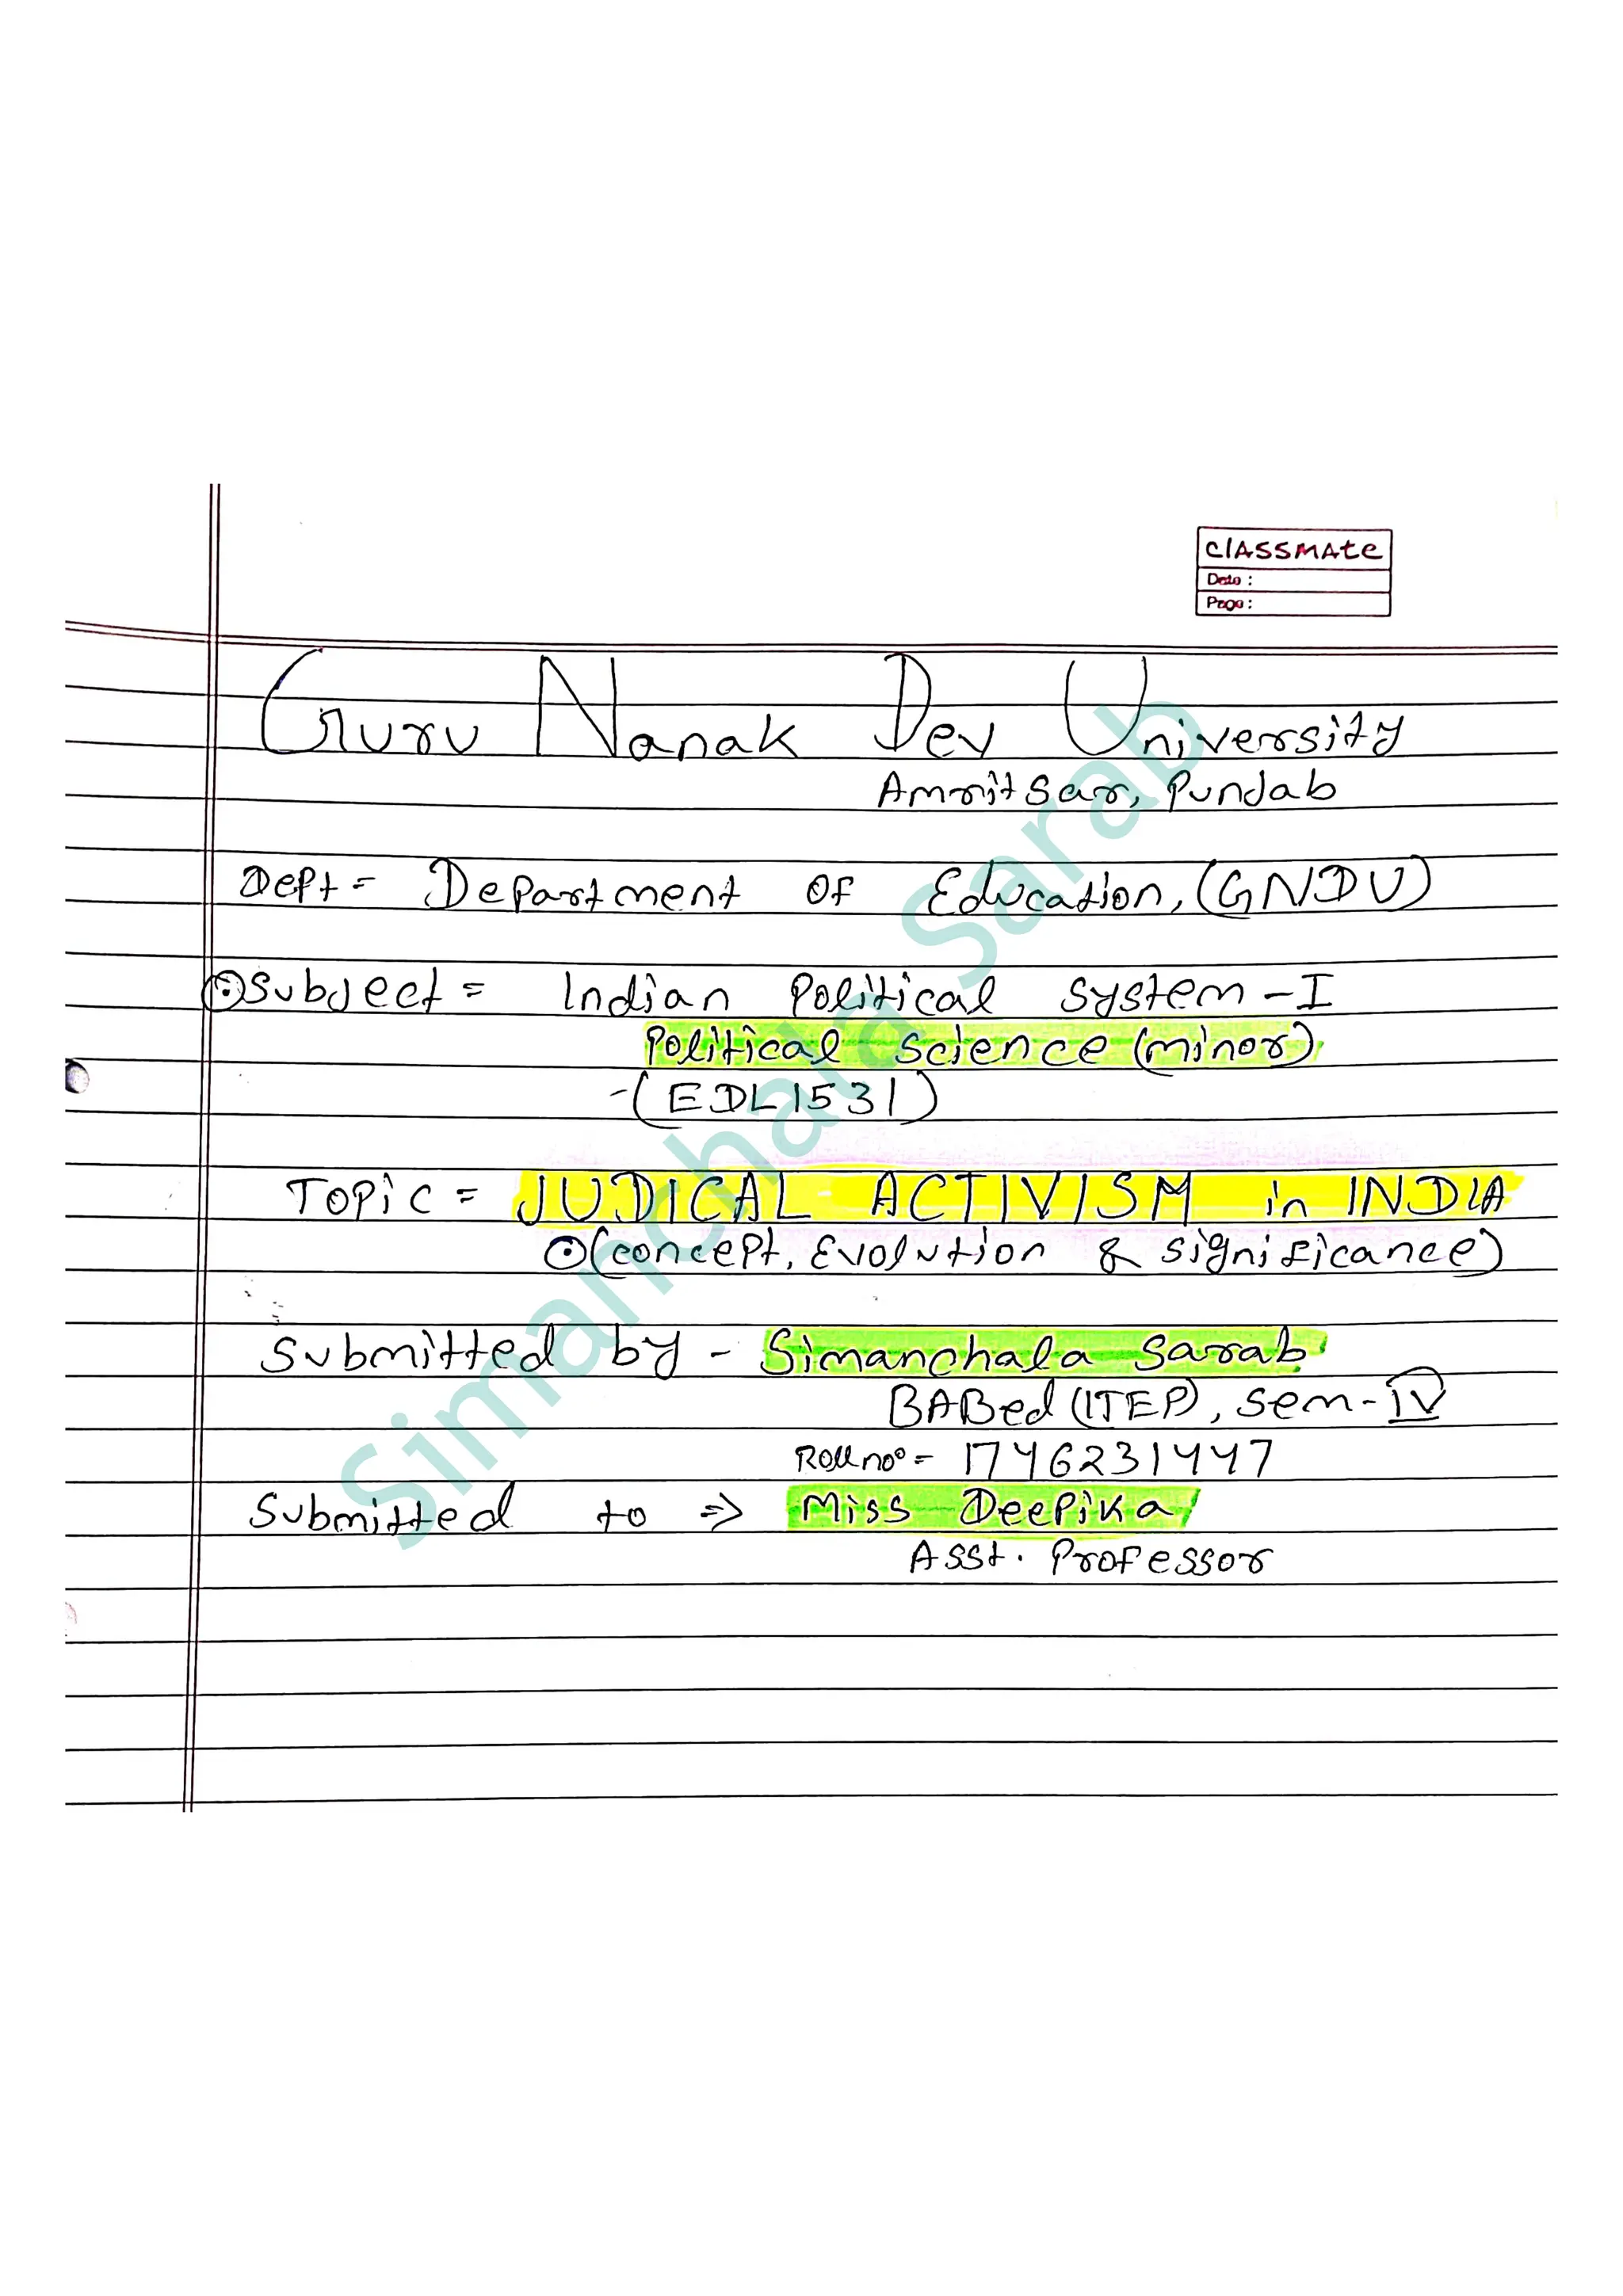 classmate
Date :
Page :
Guru Nanak Dev University
Amritsar, Punjab
Dept = Department of Education, (GNDU)
Subject = Indian Political System - I
Political Science (minor)
- (EDL1531)
Topic = JUDICAL ACTIVISM in INDIA
(concept, Evolution & significance)
Submitted by - Simanchala Sarab
BABed (ITEP), Sem - IV
Roll no = 17462231447
Submitted to => Miss Deepika
Asst. Professor
Simanchala Sarab